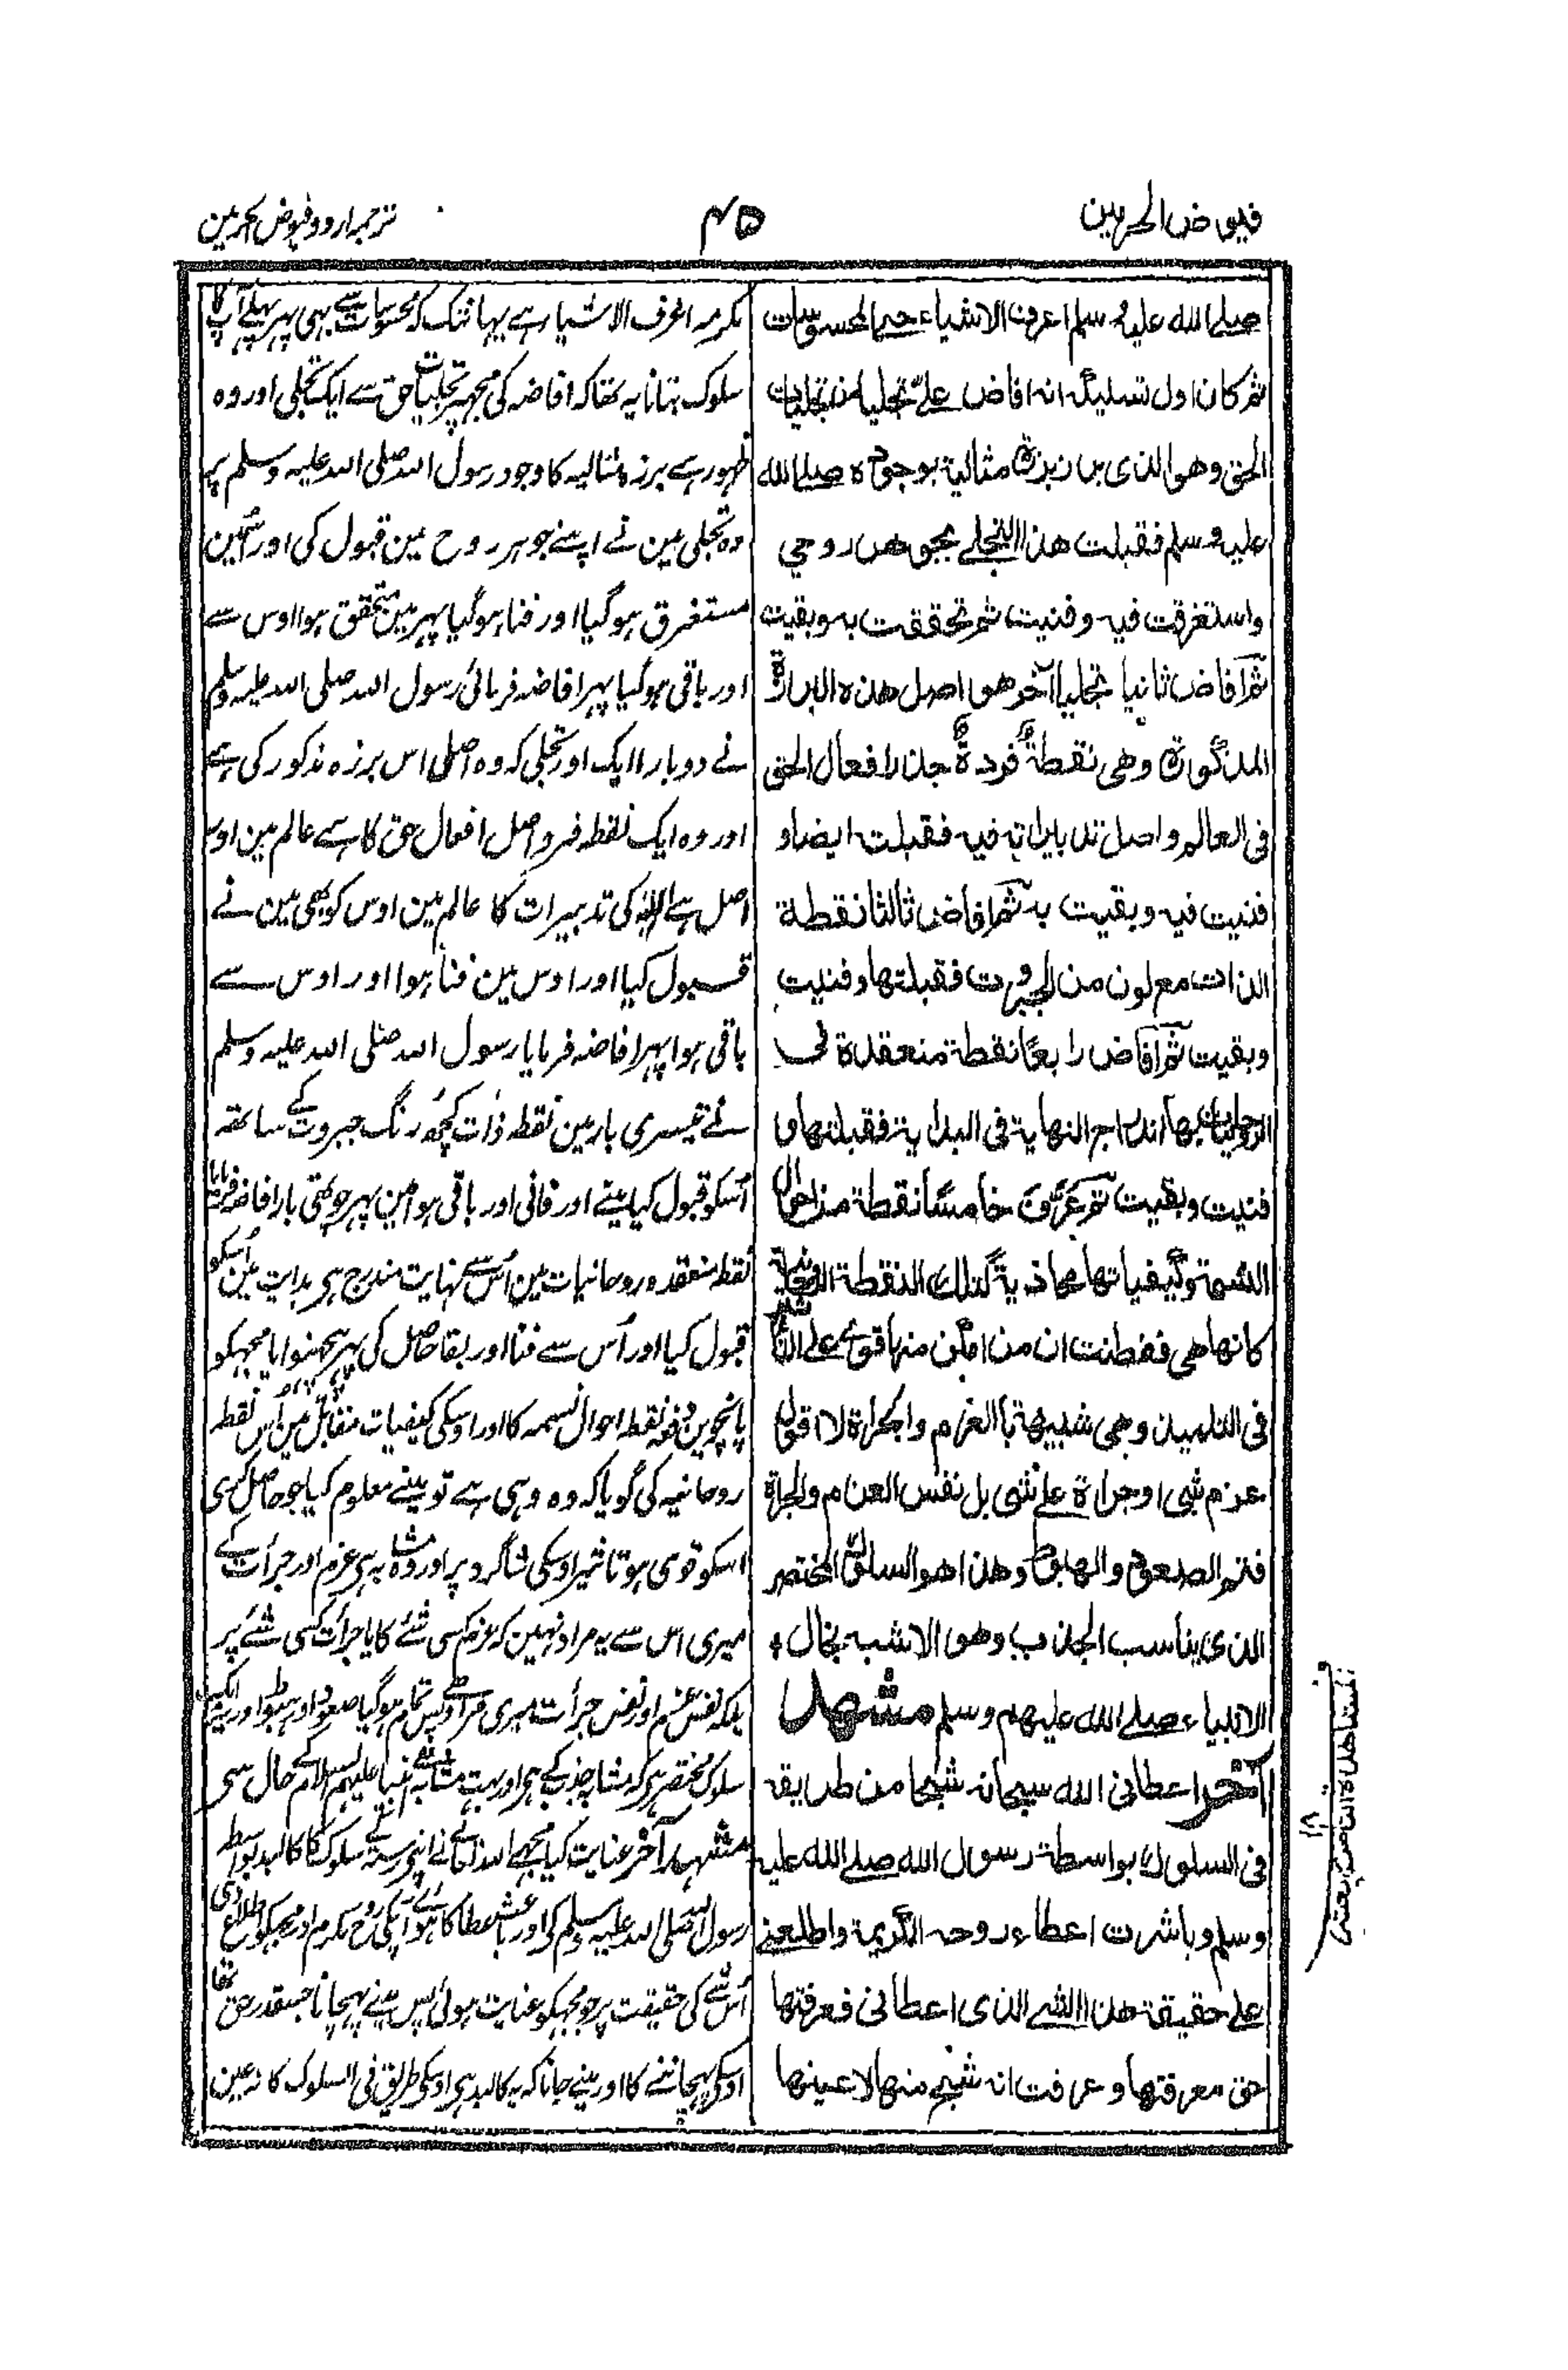 فیوض الحرمین
۴۵
ترجمہ اردو فیوض الحرمین
صلے اللہ علیہ وسلم اعرف الاشیاء حتی المحسوسات
ثم کان اول تسلیکہ انہ افاض علیّ تجلیا من تجلیات
الحق وهو الذی برز برزۃ مثالیۃ بوجودہ صلے اللہ
علیہ وسلم فقبلت هذا التجلے بجوهر روحی
واستغرقت فیہ وفنیت ثم تحققت بہ وبقیت
ثم افاض ثانیا تجلیا آخر هو اصل هذہ البرزۃ
المذکورۃ وهی نقطۃ فردۃ جذر افعال الحق
فی العالم واصل تدبیراتہ فیہ فقبلت ایضا و
فنیت فیہ وبقیت بہ ثم افاض ثالثا نقطۃ
الذات مع لون من الجبروت فقبلتها وفنیت
وبقیت ثم افاض رابعا نقطۃ منعقدۃ فی
الروحانیات بها اندراج النهایۃ فی البدایۃ فقبلتها و
فنیت وبقیت ثم عرّف خامسا نقطۃ من احوال
النسمۃ وکیفیاتها محاذیۃ لتلک النقطۃ الروحانیۃ
کانها هی ففطنت ان من امکن منها قوی علے التاثیر
فی التلمیذ وهی شبیهۃ بالعزم والجراۃ لا اقول
عزم شی او جراۃ علے شی بل نفس العزم والجراۃ
فتم الصعود والهبوط وهذا هو السلوک المختصر
الذی یناسب الجذب وهو الاشبہ بحال
الانبیاء صلے اللہ علیهم وسلم مشهد
آخر اعطانی اللہ سبحانہ شبحا من طریقہ
فی السلوک بواسطۃ رسول اللہ صلے اللہ علیہ
وسلم وباشرت اعطاء روحہ الکریمۃ واطلعنے
علے حقیقۃ هذا الشے الذی اعطانی فعرفتها
حق معرفتها وعرفت انہ شبح منها لا عینها
مکرمہ اعرف الاشیاء ہے یہانتک کہ محسوسات سے بھی پہر پہلے آپ کا
سلوک بتانا یہ تھا کہ افاضہ کی مجھپر تجلیات حق سے ایک تجلی اور وہ
ظہور ہے برزہ مثالیہ کا وجود رسول اللہ صلی اللہ علیہ وسلم پر
وہ تجلی مین نے اپنے جوہر روح مین قبول کی اور اسمین
مستغرق ہوگیا اور فنا ہوگیا پہر مین متحقق ہوا اوس سے
اور باقی ہوگیا پہر افاضہ فرمائی رسول اللہ صلی اللہ علیہ وسلم
نے دوبارا ایک اور تجلی کہ وہ اصلی اس برزہ مذکور کی ہے
اور وہ ایک نقطہ فرد اصل افعال حق کا ہے عالم مین اور
اصل ہے اللہ کی تدبیرات کا عالم مین اوس کو بھی مین نے
قبول کیا اور اوس مین فنا ہوا اور اوس سے
باقی ہوا پہر افاضہ فرمایا رسول اللہ صلی اللہ علیہ وسلم
نے تیسری بار مین نقطہ ذات کچھ رنگ جبروت کے ساتھ
اسکو قبول کیا مینے اور فانی اور باقی ہوا مین پہر چوتھی بار افاضہ فرمایا
نقطہ منعقدہ روحانیات مین اُس سے نہایت مندرج ہی بدایت مین اُسکو
قبول کیا اور اُس سے فنا اور بقا حاصل کی پہر پہچنوایا مجہکو
پانچوین دفعہ نقطہ احوال نسمہ کا اور اوسکی کیفیات مقابل مین اُس نقطہ
روحانیہ کی گویا کہ وہ وہی ہے تو مینے معلوم کیا جو حاصل کری
اسکو قوی ہو تاثیر اوسکی شاگرد پر اور وہ مشابہ ہی عزم اور جرأت کے
میری اس سے یہ مراد نہین کہ عزم کسی شئے کا یا جرأت کسی شئے پر
بلکہ نفس عزم اور نفس جرأت میری مراد ہے پس تمام ہوگیا صعود اور ہبوط اور یہ
سلوک مختصر ہی کہ مشابہ جذب کے ہی اور بہت مشابہ ہے انبیا علیہم السلام کے حال سی
مشہد آخر عنایت کیا مجہے اللہ تعالے نے اپنے رستہ کے سلوک کا کالبد بواسطہ
رسول اللہ صلی اللہ علیہ وسلم کی اور باعث عطا کا ہوا آپکی روح مکرم اور مجہکو اطلاع دی
اُس شے کی حقیقت پر جو مجہکو عنایت ہوئی پس مینے پہچانا جسقدر حق تھا
اوسکی پہچاننے کا اور مینے جانا کہ یہ کالبد ہی اوسکی طریق فی السلوک کا نہ عین